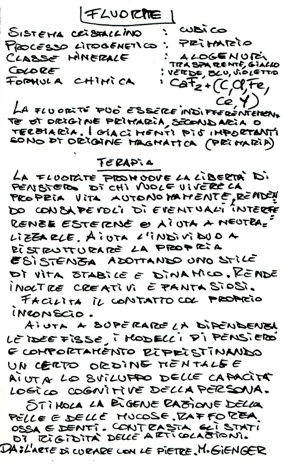 FLUORITE
SISTEMA CRISTALLINO : CUBICO
PROCESSO LITOGENETICO : PRIMARIO
CLASSE MINERALE : ALOGENURI
COLORE : TRASPARENTE, GIALLO
VERDE, BLU, VIOLETTO
FORMULA CHIMICA : CaF2 + (C, Cl, Fe,
Ce, Y)
LA FLUORITE PUÒ ESSERE INDIFFERENTEMEN-
TE DI ORIGINE PRIMARIA, SECONDARIA O
TERZIARIA. I GIACIMENTI PIÙ IMPORTANTI
SONO DI ORIGINE MAGMATICA (PRIMARIA)
TERAPIA
LA FLUORITE PROMUOVE LA LIBERTÀ DI
PENSIERO DI CHI VUOLE VIVERE LA
PROPRIA VITA AUTONOMAMENTE, RENDEN-
DO CONSAPEVOLI DI EVENTUALI INTERFE-
RENZE ESTERNE e AIUTA A NEUTRA-
LIZZARLE. AIUTA L'INDIVIDUO A
RISTRUTTURARE LA PROPRIA
ESISTENZA ADOTTANDO UNO STILE
DI VITA STABILE E DINAMICO. RENDE
INOLTRE CREATIVI E FANTASIOSI.
FACILITA IL CONTATTO COL PROPRIO
INCONSCIO.
AIUTA A SUPERARE LA DIPENDENZA
LE IDEE FISSE, I MODELLI DI PENSIERO
E COMPORTAMENTO RIPRISTINANDO
UN CERTO ORDINE MENTALE E
AIUTA LO SVILUPPO DELLE CAPACITÀ
LOGICO COGNITIVE DELLA PERSONA.
STIMOLA LA RIGENERAZIONE DELLA
PELLE E DELLE MUCOSE. RAFFORZA
OSSA E DENTI. CONTRASTA GLI STATI
DI RIGIDITÀ DELLE ARTICOLAZIONI.
DA: L'ARTE DI CURARE CON LE PIETRE. M. GIENGER